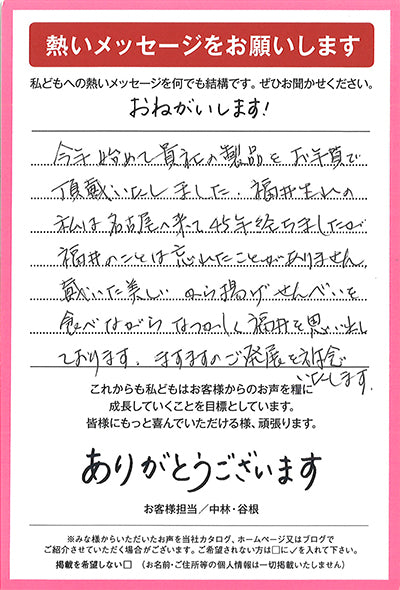 熱いメッセージをお願いします
私どもへの熱いメッセージを何でも結構です。ぜひお聞かせください。
おねがいします!
今年始めて貴社の製品をお年賀で
頂戴いたしました。福井生れの
私は名古屋へ来て45年経ちましたが
福井のことは忘れたことがありません。
戴いた美しい から揚げせんべいを
食べながらなつかしく福井を思い出し
ております。ますますのご発展を祈念
いたします。
これからも私どもはお客様からのお声を糧に
成長していくことを目標としています。
皆様にもっと喜んでいただける様、頑張ります。
ありがとうございます
お客様担当/中林・谷根
※みな様からいただいたお声を当社カタログ、ホームページ又はブログで
ご紹介させていただく場合がございます。ご希望されない方は□に✓を入れて下さい。
掲載を希望しない□ (お名前・ご住所等の個人情報は一切掲載いたしません)